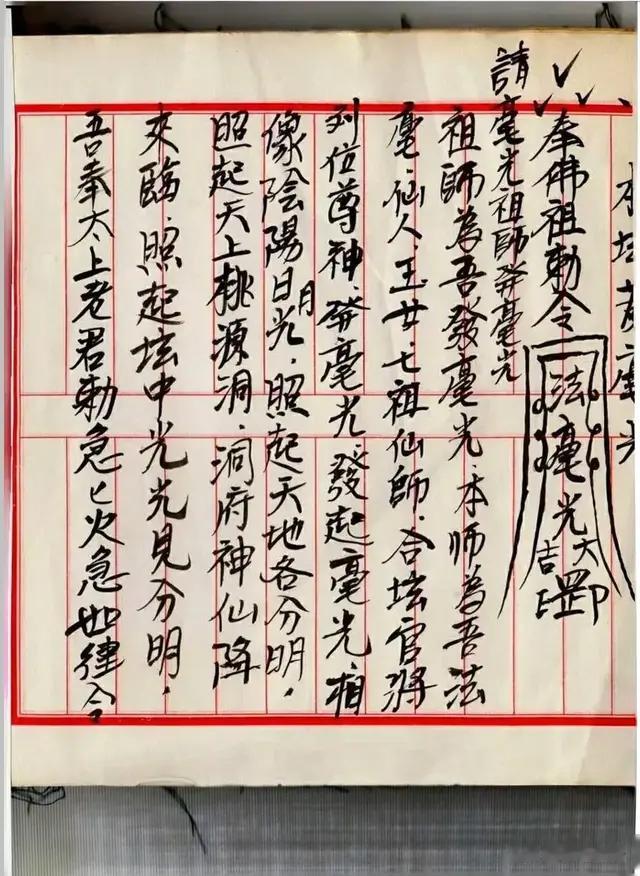 奉佛祖勅令
法毫光
大罡
吉
請毫光祖師發毫光
祖師為吾發毫光.本師為吾法
毫.仙人.玉女.七祖仙師.合坛官将
列位尊神.發毫光.發起毫光相
像陰陽日月光.照起天地各分明.
照起天上桃源洞.洞府神仙降
來臨.照起坛中光光見分明.
吾奉太上老君勅急匕火急如律令